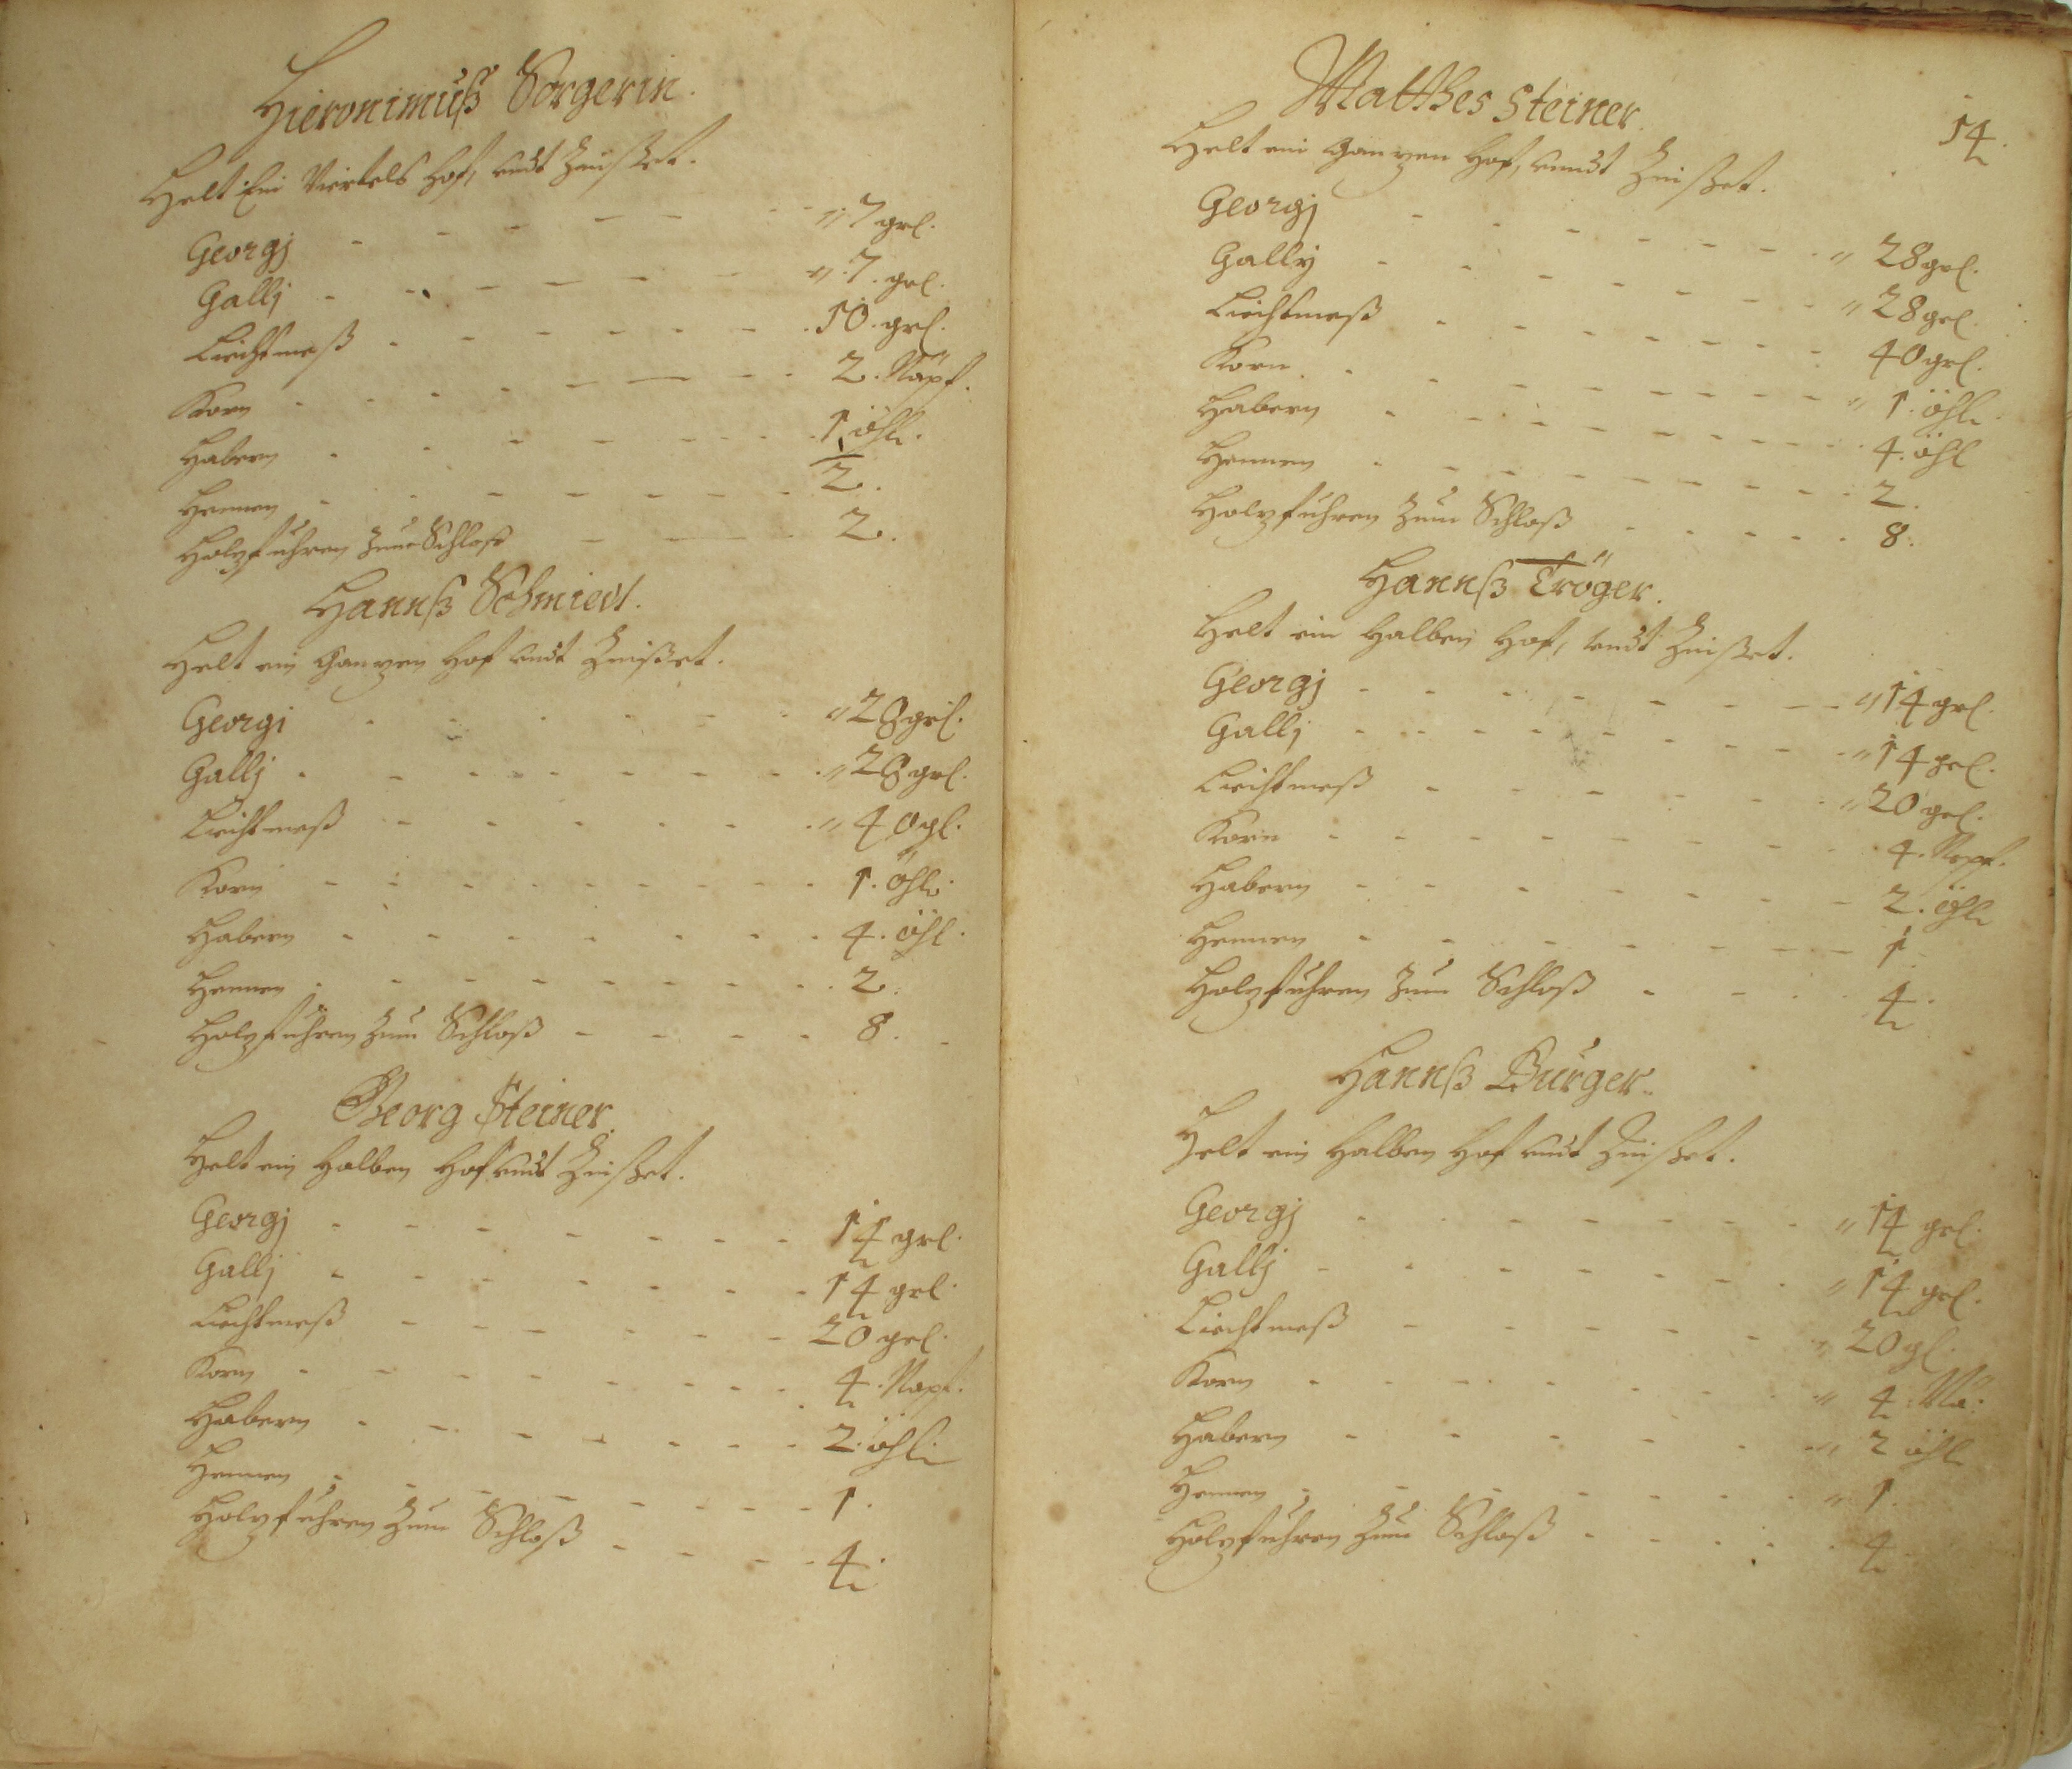 Hieronimuß Sorgerin.
Helt Ein Viertels Hof, undt Zinßet.
Georgj - - - - - - " 7 grl.
Gallj - - - - - - " 7. grl.
Liechtmeß - - - - - - 10. grl.
Korn - - - - - - 2. Näpf.
Habern - - - - - - 1. öhl.
Hennen - - - - - - ½.
Holzfuhren zum Schloß - - - 2.
Hannß Schmiedt.
Helt ein Ganzen Hof undt Zinßet.
Georgi - - - - - - " 28 grl.
Gallj - - - - - - " 28 grl.
Liechtmeß - - - - - - " 40 gl.
Korn - - - - - - 1. öhl.
Habern - - - - - - 4. öhl.
Hennen - - - - - - 2.
Holzfuhren zum Schloß - - - - 8.
Georg Steiner.
Helt ein Halben Hof undt Zinßet.
Georgj - - - - - - 14 grl.
Gallj - - - - - - 14 grl.
Liechtmeß - - - - - - 20 grl.
Korn - - - - - - 4. Napf.
Habern - - - - - - 2. öhl.
Hennen - - - - - - 1.
Holzfuhren zum Schloß - - - - 4.
14.
Matthes Steiner.
Helt ein Ganzen Hof, undt Zinßet.
Georgj - - - - - - " 28 grl.
Gally - - - - - - " 28 grl.
Liechtmeß - - - - - - 40 grl.
Korn - - - - - - " 1. öhl.
Habern - - - - - - 4. öhl
Hennen - - - - - - 2.
Holzfuhren zum Schloß - - - - 8.
Hannß Tröger.
Helt ein Halben Hof, undt Zinßet.
Georgj - - - - - - " 14 grl.
Gallj - - - - - - " 14 grl.
Liechtmeß - - - - - - " 20 grl.
Korn - - - - - - 4. Napf.
Habern - - - - - - 2. öhl
Hennen - - - - - - 1.
Holzfuhren zum Schloß - - - - 4.
Hannß Burger.
Helt ein Halben Hof undt Zinßet.
Georgj - - - - - - " 14 grl.
Gallj - - - - - - " 14 grl.
Liechtmeß - - - - - - " 20 gl.
Korn - - - - - - " 4. Nä:
Habern - - - - - - " 2 öhl
Hennen - - - - - - " 1.
Holzfuhren zum Schloß - - - - 4